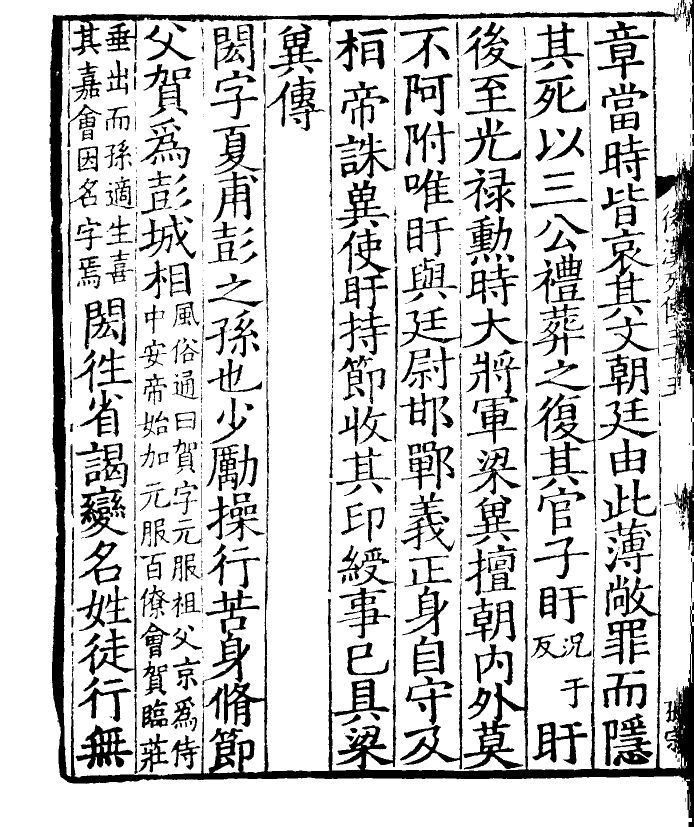 章當時皆哀其文朝廷由此薄敞罪而隱
其死以三公禮葬之復其官子盱況于反盱
後至光禄勲時大將軍梁兾擅朝内外莫
不阿附唯盱與廷尉邯鄲義正身自守及
桓帝誅兾使盱持節收其印綬事已具梁
兾傳
閎字夏甫彭之孫也少勵操行苦身脩節
父賀爲彭城相風俗通曰賀字元服祖父京爲侍中安帝始加元服百僚會賀臨莊
垂出而孫適生喜其嘉會因名字焉閎徃省謁變名姓徒行無